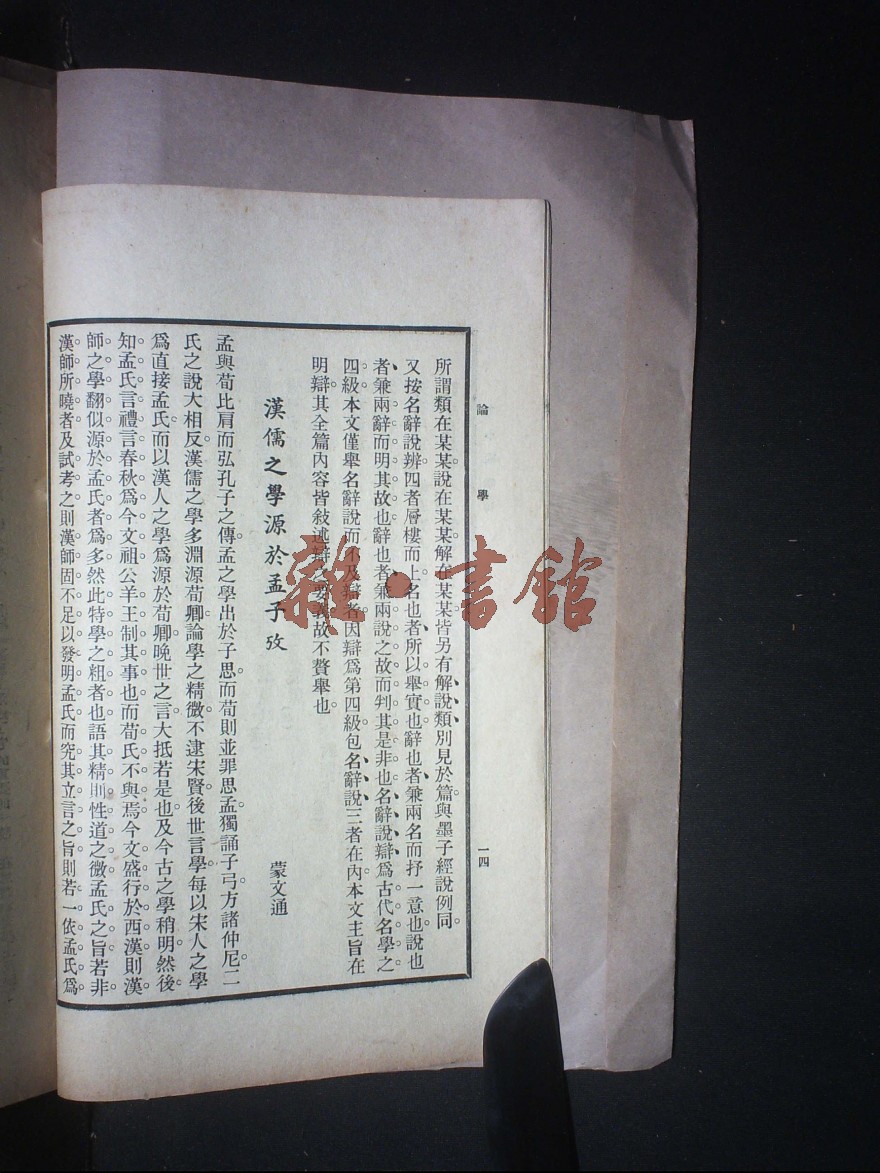 論學 一四
所謂類在某某。說在某某。解在某某。皆另有解說類。別見於篇。與墨子經說例同。
又按名辭說辨四者。層樓而上。名也者。所以舉實也。辭也者。兼兩名而抒一意也。說也
者。兼兩辭而明其故也。辭也者。兼兩說之故而判其是非也。名辭說辯。爲古代名學之
四級。本文僅舉名辭說而不及辯者。因辯爲第四級。包名辭說三者在內。本文主旨在
明辯。其全篇內容皆敍述辯之要義。故不贅舉也。
漢儒之學源於孟子攷
蒙文通
孟與荀比肩而弘孔子之傳。孟之學出於子思。而荀則並罪思孟。獨誦子弓。方諸仲尼。二
氏之說大相反。漢儒之學。多淵源荀卿。論學之精微。不逮宋賢。後世言學。每以宋人之學
爲直接孟氏。而以漢人之學爲源於荀卿。晚世之言。大抵若是也。及今古之學稍明。然後
知孟氏言禮言春秋。爲今文祖。公羊王制其事也。而荀氏不與焉。今文盛行於西漢。則漢
師之學。翻似源於孟氏者爲多。然此特學之粗者也。語其精。則性道之微。孟氏之旨。若非
漢師所曉者。及試考之。則漢師固不足以發明孟氏。而究其立言之旨。則若一依孟氏爲
雜·書館